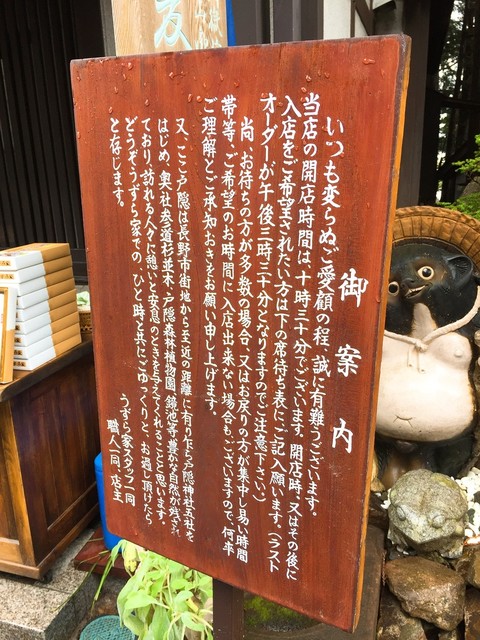 御案内
いつも変らぬご愛顧の程、誠に有難うございます。
当店の開店時間は十時三十分でございます。開店時、又はその後に
入店をご希望されたい方は下の席待ち表にご記入願います。(ラスト
オーダーが午後三時三十分となりますのでご注意下さい。)
尚、お待ちの方が多数の場合、又はお戻りの方が集中し易い時間
帯等、ご希望のお時間に入店出来ない場合もございますので、何卒
ご理解とご承知おきをお願い申し上げます。
又、ここ戸隠は長野市街地から至近の距離に有り乍ら戸隠神社五社を
はじめ、奥社参道杉並木・戸隠森林植物園、鏡池等、豊かな自然が残され
ており、訪れる人々に憩いと安息のときを与えてくれることと思います。
どうぞうずら家での、ひと時と共にごゆっくりと、お過し頂けたら
と存じます。
うずら家スタッフ一同
職人一同、店主